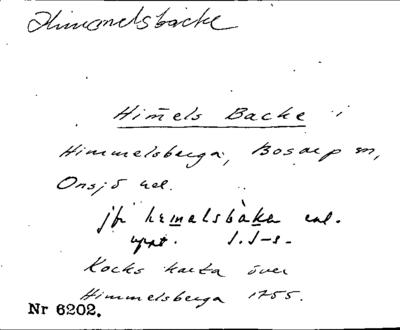 Himmelsbacke
Him̄els Backe i
Himmelsberga, Bosarp sn,
Onsjö hd.
jfr hemelsbaka enl.
uppt. I.I-s.
Kocks karta över
Himmelsberga 1755.
Nr 6202.